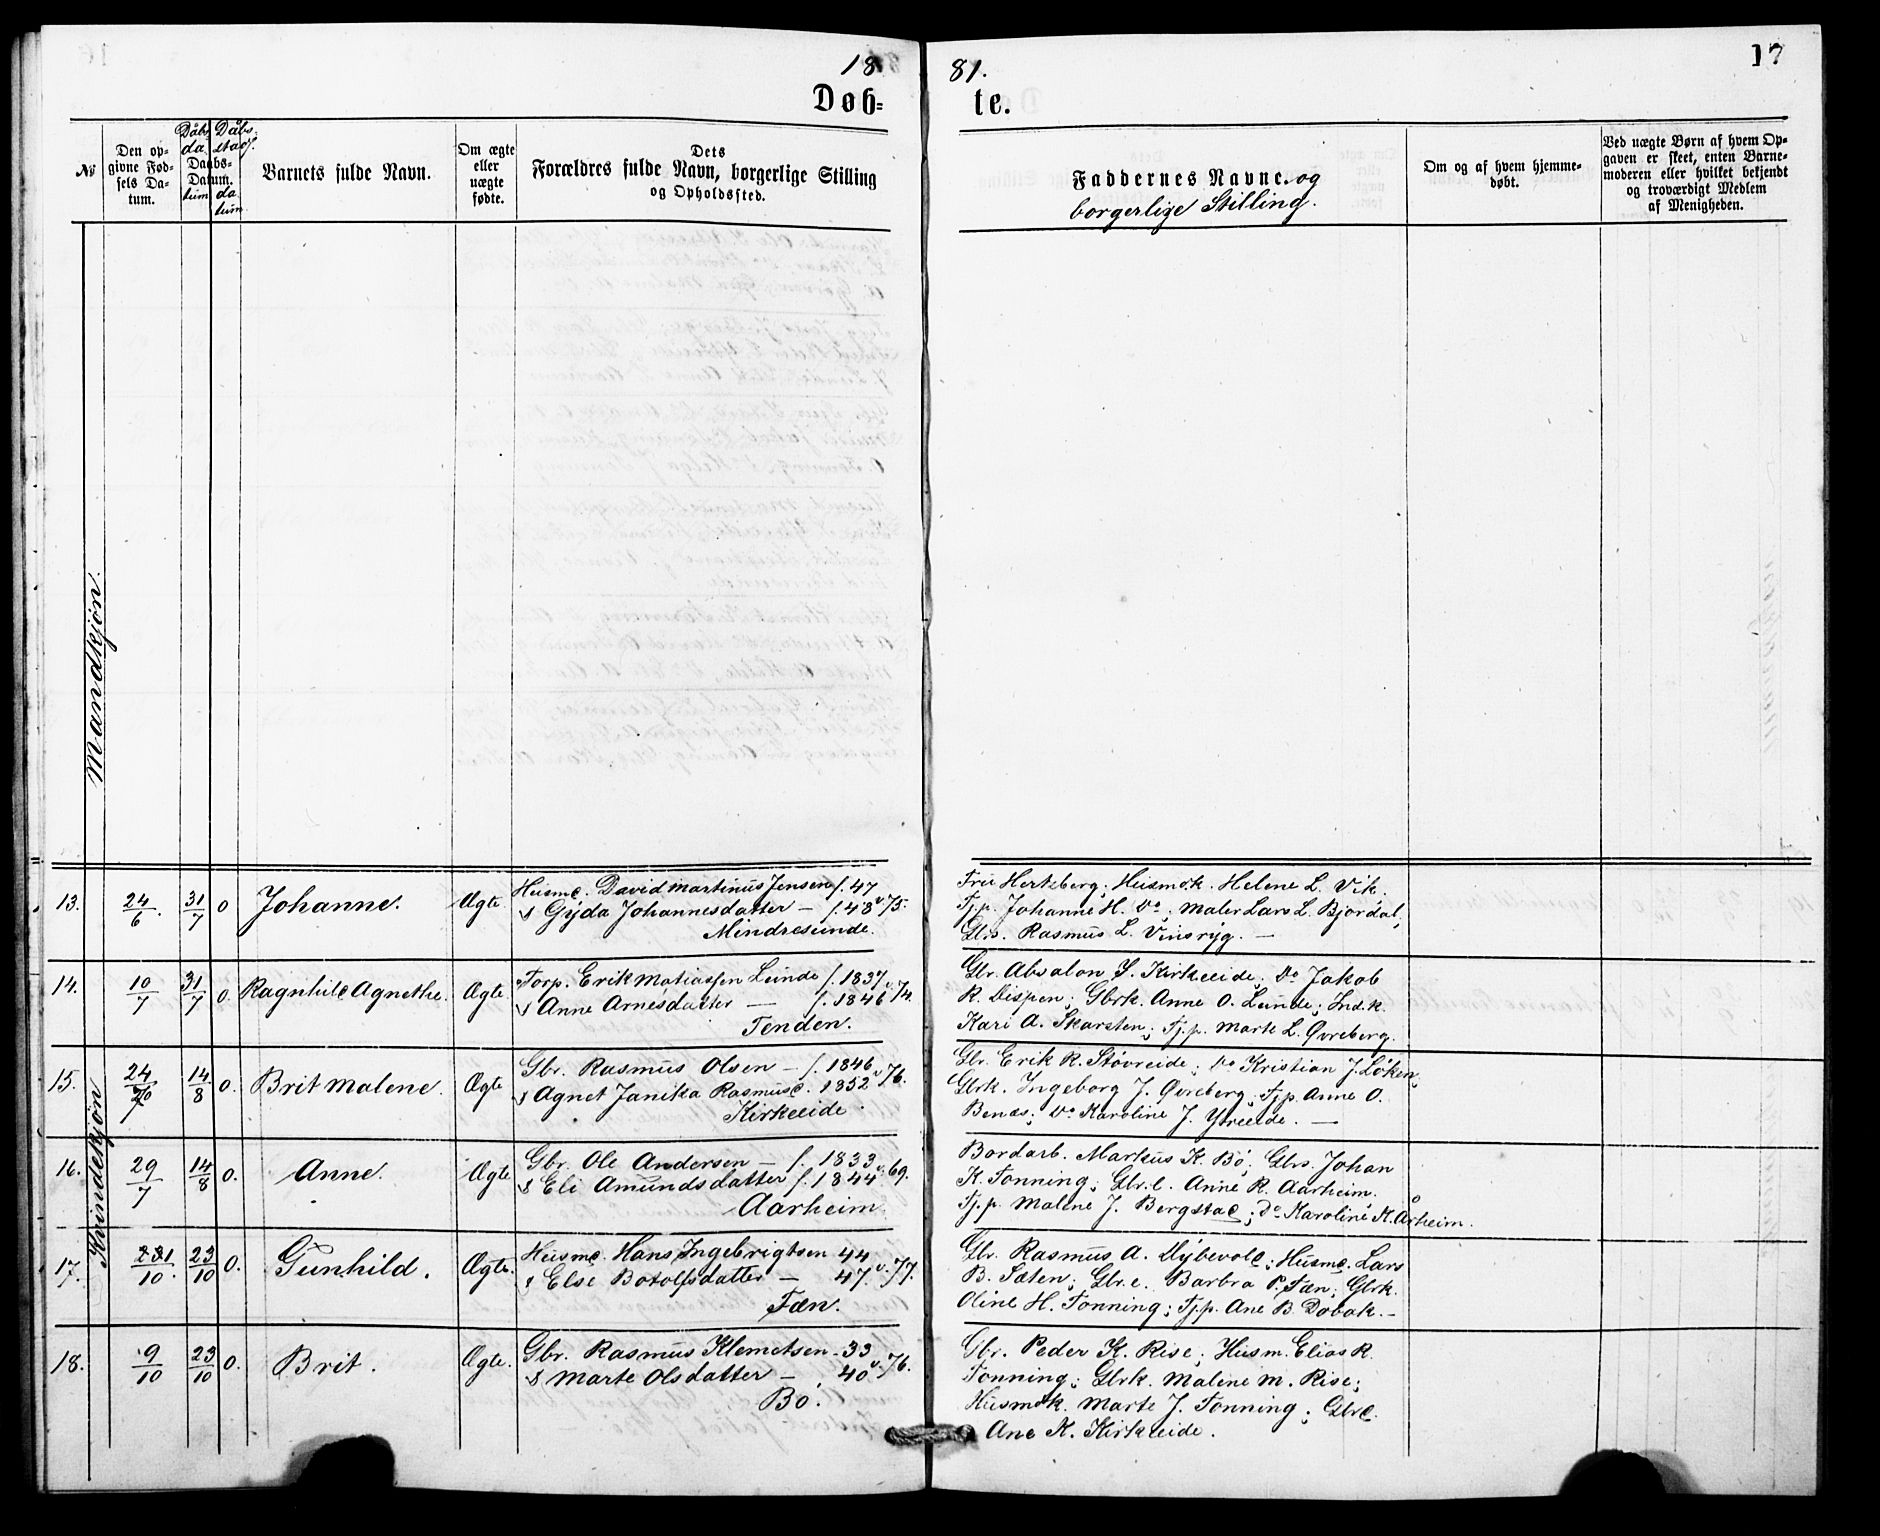 1881.
17
Døb-
te.
№
Den op-
givne Fød-
sels Da-
tum.
Dåbs
da
tum
Daabs-
Datum.
Dåbs.
stad
da
tum.
Barnets fulde Navn.
Om ægte
eller
uægte
fødte.
Dets
Forældres fulde Navn, borgerlige Stilling
og Opholdssted.
Faddernes Navne og
borgerlige Stilling.
Om og af hvem hjemme-
døbt.
Ved uægte Børn af hvem Op-
gaven er skeet, enten Barne-
moderen eller hvilket bekjendt
og troværdigt Medlem
af Menigheden.
Mandkjøn.
Kvindekjøn
13. 24/6. 31/7 0 Johanne. Ægte
Husmd. David Martinus Jensen f. 47
& Gyda Johannesdatter — f. 48 v. 75.
Mindresunde.
Fru Hertzberg; Husmdk. Helene L. Vik.
Tj.p. Johanne H. Do; Maler Lars L. Bjordal,
Gbrs. Rasmus L. Vinsryg. —
14. 10/7 31/7 0. Ragnhild Agnethe. Ægte
Forp. Erik Matiassen Lunde f. 1837
& Anne Arnesdatter — f. 1846 v. 74.
Tenden.
Gbr. Absalon S. Kirkeeide; Do Jakob
R. Dispen; Gbrk. Anne O. Lunde; Ind.k.
Kari A. Skarsten; Tj.p. Marte L. Øvreberg.
15. 24/7 14/8 0. Brit Malene. Ægte
Gbr. Rasmus Olsen — f. 1846
& Agnet Janika Rasmusd. 1852 v. 76.
Kirkeeide.
Gbr. Erik R. Støvreide; Do Kristian J. Løken;
Gbrk. Ingeborg J. Øvreberg; Tj.p. Anne O.
Benæs; Do Karoline J. Ytreeide. —
16. 29/7 14/8 0. Anne. Ægte
Gbr. Ole Andersen — f. 1833
& Eli Amundsdatter f. 1844 v. 69.
Aarheim
Bordarb. Markus K. Bø; Gbrs. Johan
K. Tonning; Gbr.e. Anne R. Aarheim.
Tj.p. Malene J. Bergstad; Do Karoline K. Årheim.
17. /10. 23/10 0. Gunhild. Ægte.
Husmd. Hans Ingebrigtsen 44
& Else Botolfsdatter — 47. v. 77.
Fæn.
Gbr. Rasmus A. Myhevold; Husmd. Lars
B. Sæten; Gbr.e. Barbra P. Fæn; Gbrk.
Oline H. Tonning; Tj.p. Ane B. Dobak. —
18. 9/10 23/10 0. Brit. Ægte.
Gbr. Rasmus Klemetsen. 33
& Marte Olsdatter — 40 v. 76.
Bø.
Gbr. Peder K. Rise; Husm. Elias R.
Tonning; Gbrk. Malene M. Rise;
Husmdk. Marte J. Tonning; Gbrd.
Ane K. Kirkeeide.